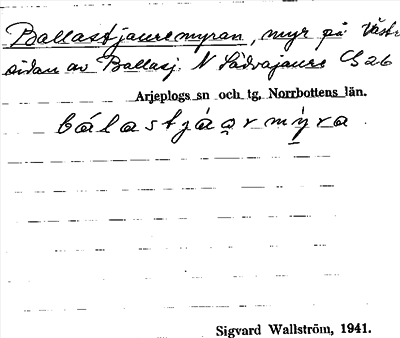 Ballastjauremyran, myr på Västr
sidan av Ballasj. N Sädvajaure CS 26
Arjeplogs sn och tg, Norrbottens län.
bálastjáạrmýra.
Sigvard Wallström, 1941.